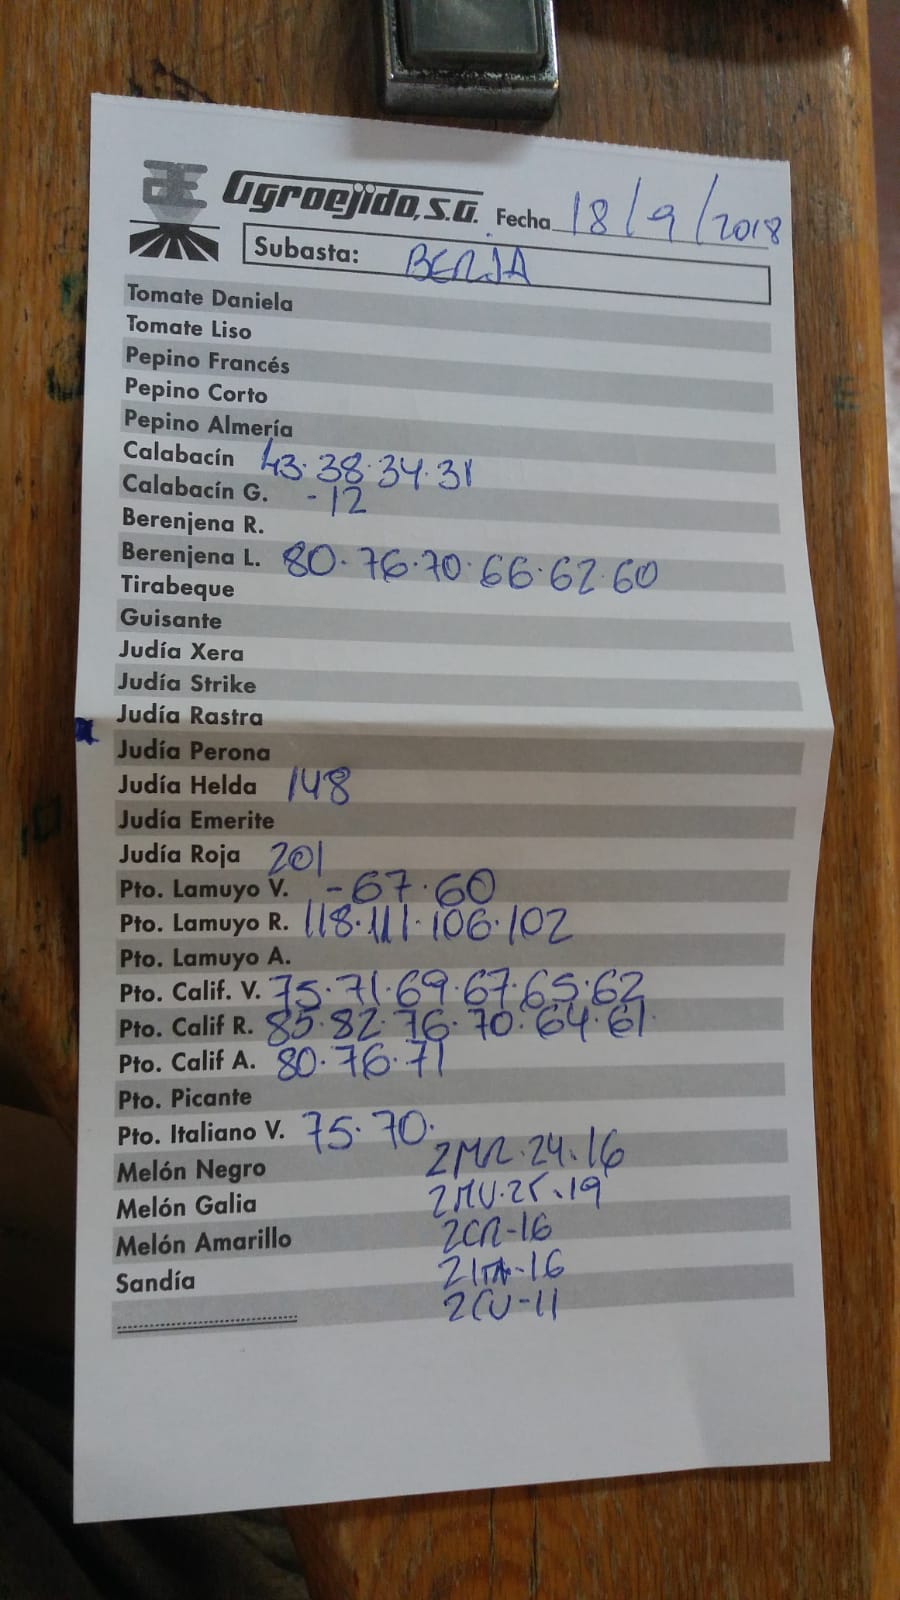 Agroejido, S.A. Fecha 18/9/2018
Subasta: BERJA
Tomate Daniela
Tomate Liso
Pepino Francés
Pepino Corto
Pepino Almería
Calabacín 43.38.34.31
Calabacín G. -12
Berenjena R.
Berenjena L. 80.76.70.66.62.60
Tirabeque
Guisante
Judía Xera
Judía Strike
Judía Rastra
Judía Perona
Judía Helda 148
Judía Emerite
Judía Roja 201
Pto. Lamuyo V. -67.60
Pto. Lamuyo R. 118.111.106.102
Pto. Lamuyo A.
Pto. Calif. V. 75.71.69.67.65.62
Pto. Calif R. 85.82.76.70.64.61.
Pto. Calif A. 80.76.71
Pto. Picante
Pto. Italiano V. 75.70.
Melón Negro 2MR.24.16
Melón Galia 2MV.25.19
Melón Amarillo 2CR-16
Sandía 2ITA-16
2CV-11